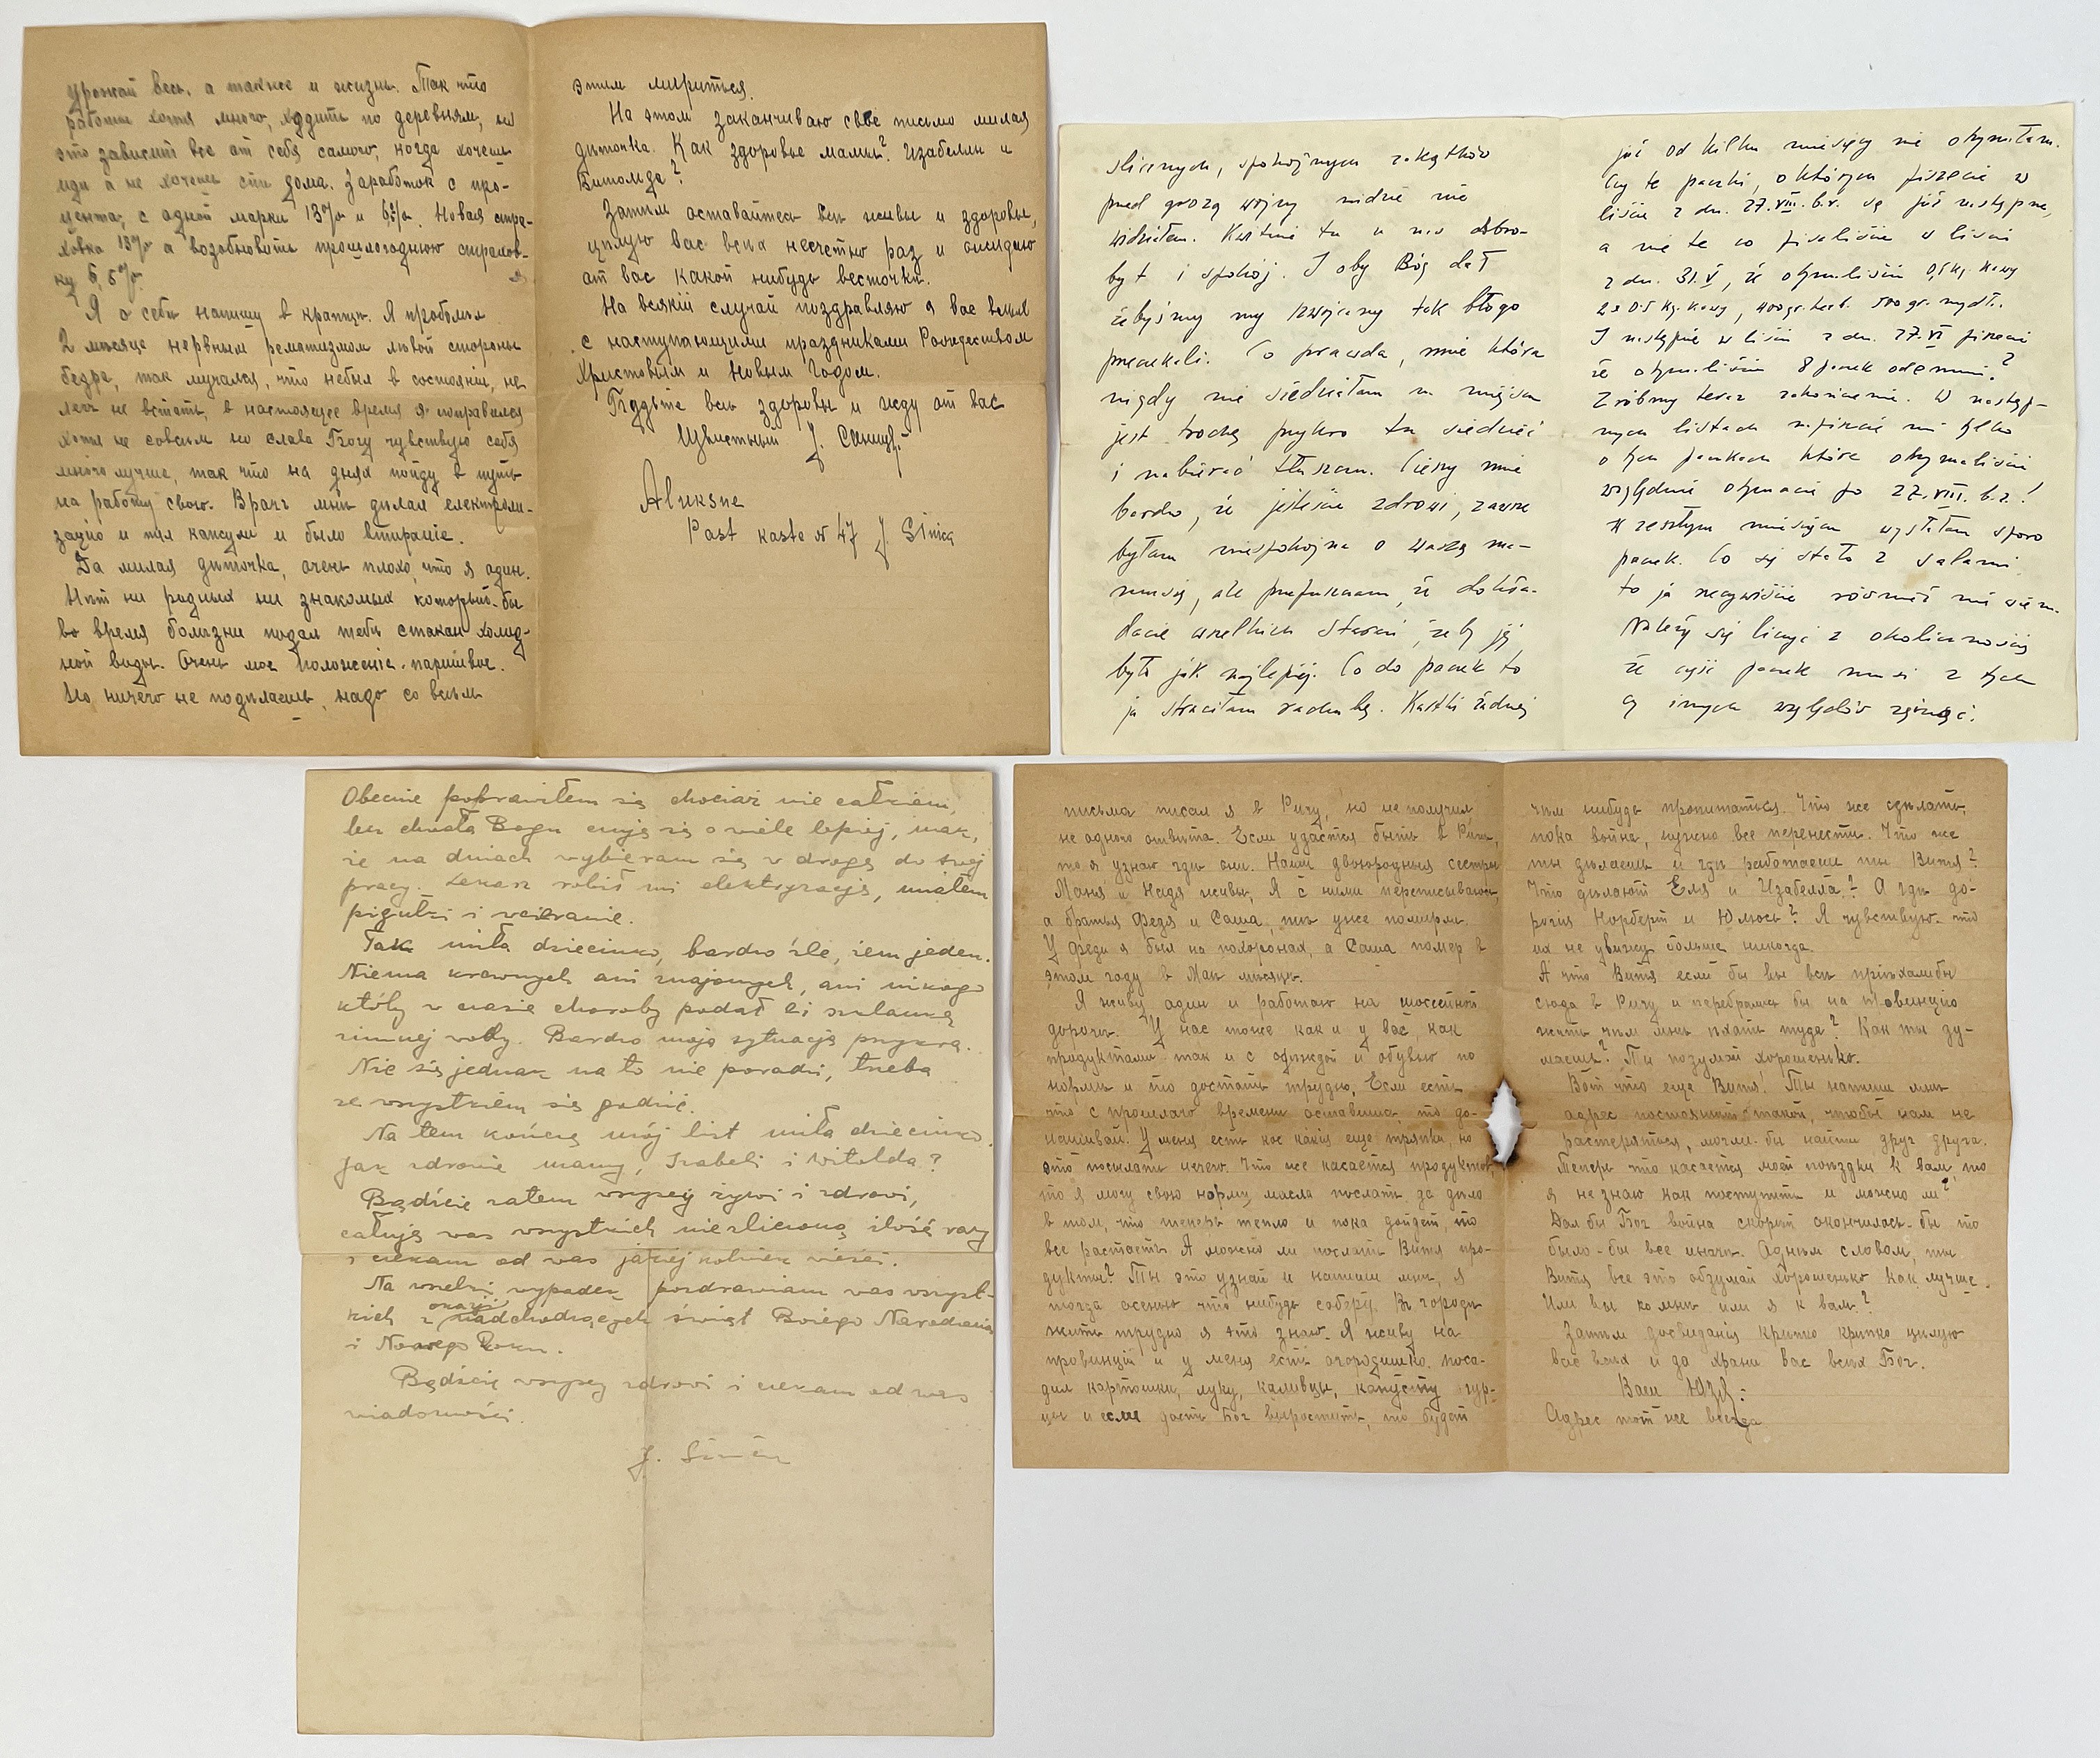 урожай весь, а также и жизнь. Так что
работы хотя много, ходить по деревням, но
это зависит все от себя самого, когда хочешь
иди а не хочешь сиди дома. Заработок с про-
цента, с одной марки 13% и 6%. Новая страх-
ховка 13% а возобновить прошлогоднюю страхов-
ку 6,5%.
Я о себе напишу в кратце. Я проболел
2 месяца нервным ревматизмом левой стороны
бедра, так мучался, что небыл в состояніи, не
лечь не встать, в настоящее время я поправился
хотя не совсем но слава Богу чувствую себя
много лучше, так что на днях пойду в путь
на работу свою. Врач мне делал електризи-
зацію и пил капсули и было втираніе.
Да милая диточка, очень плохо, что я один.
Нет ни родных ни знакомых который-бы
во время болезни подал тебе стакан холод-
ной воды. Очень мое положеніе паршивое.
Но ничего не поделаешь, надо со всем
этим мириться.
На этом заканчиваю свое письмо милая
диточка. Как здоровье мамы? Изабеллы и
Витольда?
Затем оставайтесь все живы и здоровы,
целую вас всех несчетно раз и ожидаю
от вас какой нибудь весточки.
На всякій случай поздравляю я вас всех
с наступающими праздниками Рождеством
Христовым и Новым Годом.
Будьте все здоровы и жду от вас
J.
Aluksne
Past kaste № 47 J.
ślicznych, spokojnych zakątków
przed grozą wojny nidzie nie
widziałam. Kwitnie tu u nas dobro-
byt i spokój. I oby Bóg dał
żebyśmy my wojenny tak błogo
przeczekali. Co prawda, mnie która
nigdy nie siedziałam na miejscu
jest trochę przykro tu siedzieć
i nabierać tłuszczu. Cieszy mnie
bardzo, że jesteście zdrowi, zawsze
byłam niespokojna o waszą ma-
musię, ale przypuszczam, że dokła-
dacie wszelkich starań, żeby jej
było jak najlepiej. Co do paczek to
ja straciłam rachubę. Kartki żadnej
już od kilku miesięcy nie otrzymałam.
Czy te paczki, o których piszecie w
liście z dn. 27.VIII. b.r. są już następne,
a nie te co pisaliście w liście
z dn. 31.V, że otrzymaliście 0,5 kg kawy
2x 0.5 kg. kawy, 400 gr. herb. 500 gr. mydł.
I następnie w liście z dn. 27.VI piszecie
że otrzymaliście 8 paczek odemnie?
Zróbmy teraz zakończenie. W następ-
nych listach napiszcie mi tylko
o tych paczkach które otrzymaliście
względnie otrzymacie po 27.VIII. b.r.!
W zeszłym miesiącu wysłałam sporo
paczek. Co się stało z salami
to ja oczywiście również nie wiem.
Należy się liczyć z okolicznością
że część paczek musi z tych
czy innych względów zginąć.
Obecnie poprawiłem się chociaż nie całkiem,
lecz chwała Bogu czuję się o wiele lepiej, tak,
że na dniach wybieram się w drogę do swej
pracy. Lekarz robił mi elektryzację, miałem
pigułki i wcieranie.
Tak miła dziecinko, bardzo źle, żem jeden.
Niema krewnych ani znajomych, ani nikogo
któby w czasie choroby podał ci szklankę
zimnej wody. Bardzo moja sytuacja przykra.
Nic się jednak na to nie poradzi, trzeba
ze wszystkiem się godzić.
Na tem kończę mój list miła dziecinko.
Jak zdrowie mamy, Izabeli i Witolda?
Bądźcie zatem wszyscy żywi i zdrowi,
całuję was wszystkich niezliczoną ilość razy
i czekam od was jakiejkolwiek wieści.
Na wszelki wypadek pozdrawiam was wszyst-
kich z okazji nadchodzących świąt Bożego Narodzenia
i Nowego Roku.
Bądźcie wszyscy zdrowi i czekam od was
wiadomości.
J.
письма писал я в Ригу, но не получил
не одного ответа. Если удастся быть в Риге,
то я узнаю где они. Наши двоюродныя сестры
Маня и Надя живы, Я с ними переписываюсь,
а братья Федя и Саша, те уже померли.
У Феди я был на похоронах, а Саша помер в
этом году в Мае месяце.
Я живу один и работаю на шоссейной
дороге. У нас тоже как и у вас, как
продуктами так и с одеждой и обувью по
норме и то достать трудно. Если есть
что с прошлаго времени оставшиеся, то до-
нашивай. У меня есть кое какія еще тряпки, но
это посылать нечего. Что же касается продуктов,
то я могу свою норму масла послать, да дело
в том, что теперь тепло и пока дойдет, то
все растает. А можно ли послать Витя про-
дукты? Ты это узнай и напиши мне, я
тогда осенью что нибудь соберу. В городе
жить трудно я это знаю. Я живу на
провинціи и у меня есть огородишко, поса-
дил картошки, луку, каливцы, капусту огур-
цы и если даст Бог выростить, то будет
чем нибудь пропитаться. Что же сделать,
пока война, нужно все перенести. Что же
ты делаешь и где работаеш ты Витя?
Что делают Еля и Изабелла? А где до-
рогія Норберт и Юлюсь? Я чувствую что
их не увижу больше никогда.
А что Витя если бы вы все пріехалибы
сюда в Ригу и перебрались бы на провинцію
жить чем мне ехать туда? Как ты ду-
маешь? Ты подумай хорошенько.
Вот что еще Витя! Ты напиши мне
адрес постоянный такой, чтобы нам не
растеряться, могли бы найти друг друга.
Теперь что касается моей поездки к вам, то
я не знаю как поступить и можно ли?
Дал бы Бог война скорей окончилась-бы то
было-бы все иначе. Одним словом, ты
Витя все это обдумай хорошенько как лучше.
Или вы ко мне или я к вам?
Затем досвиданія крепко крепко целую
вас всех и да храни вас всех Бог.
Ваш Юзя.
Адрес тот же всегда